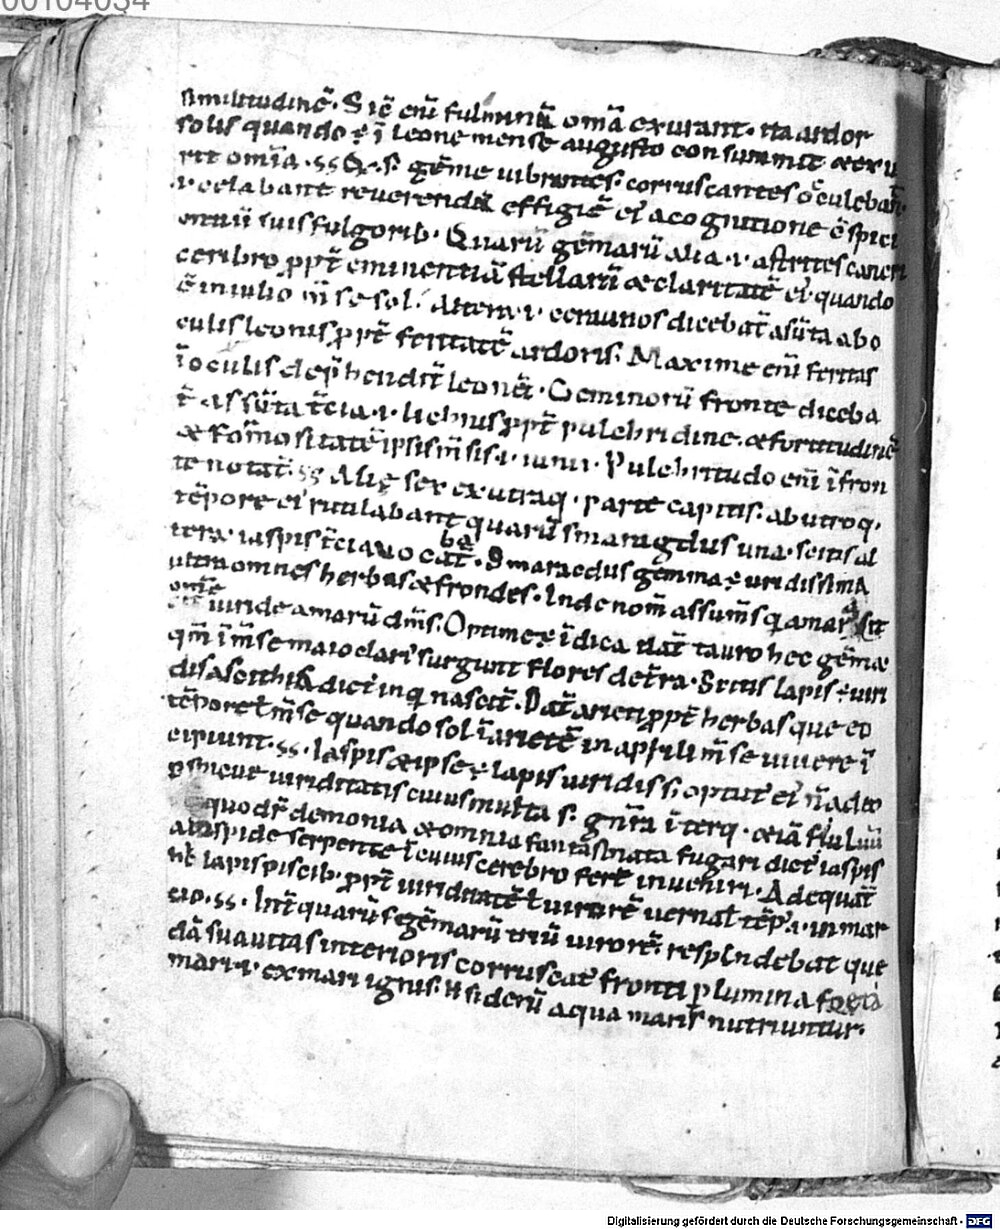 00104034
similitudinē. Sic̄ eni̅ fulminū om̄a exurant. ita ardor
solis quando ē ī leone mense augusto consummit & exu
rit om̄ia. SS Q̄. s. gēme uibrantes. corruscantes oculebāt.
.i. celabant reuerendā effigiē ei a cognitione ōspici
entiū suis fulgorib. Quarū gēmarū alia .i. astrites cancri
cerebro ꝓpt̄ eminentiā stellarū & claritatē ei quando
ē in iulio m̄se sol. Altera .i. ceraunos dicebat̄ asūta ab o
culis leonis ꝓpt̄ feritatē ardoris. Maxime eni̅ feritas
ī oculis dep̄hendit̄ leonē. Geminorū fronte diceba
t̄ assūta t̄cia .i. lichnis ꝓpt̄ pulchridinē. & fortitudinē
& formositatē ipsi m̄sis .i. iunii. Pulchritudo eni̅ ī fron
te notat̄. SS Alię sex ex utraq. parte capitis. ab utroq.
tēpore ei rutilabant quarū smaragdus una. scitis al
tera. iaspis t̄cia uocabāt̄. Smaracdus gemma ē uiridissima
ultra omnes herbas & frondes. Inde nom̄ assūmsit q amar̄ sit
om̄e uiride amarū dim̄s. Optime ē īdica dat̄ tauro hec gēma
qm̄ ī m̄se maio clari surgunt flores de t̄ra. Scitis lapis ē uiri
dis a scithia dict̄ in q nascit̄. Dat̄ arieti ꝓpt̄ herbas que eo
tēpore t̄ m̄se quando sol ī arietē in aprili m̄se uiuere ī
cipiunt. SS. Iaspis & ipse ē lapis uiridis s; optut ei n̄ adeo
ꝑspicue uiriditatis cuius multa s. gn̄ra
quo dr̄ demonia & omnia fantasmata fugari dict̄ iaspis
ab aspide serpente ī cuius cerebro fert̄ inueniri. Adequat̄
hē lapis piscib. ꝓpt̄ uiriditatē t̄ uirorē uernal tēp̄ .i. in mar
cio. SS. Int̄ quarū s. gēmarū triū uirorē. resplndebat que
dā suauitas interioris corruscat̄ fronti p lumina
mari .i. ex mari ignis. n̄ siderū aqua maris nutriuntur.
Digitalisierung gefördert durch die Deutsche Forschungsgemeinschaft - DFG